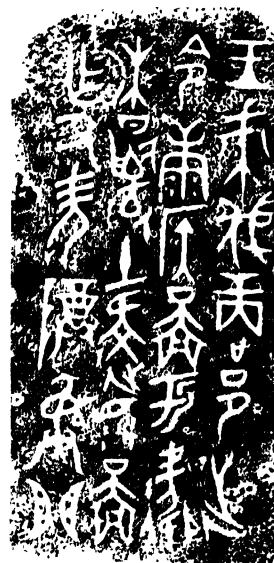 王朿伐商邑𢓊
令康侯啚于衛
沬司土疑眔啚
乍氒考尊彝䀠